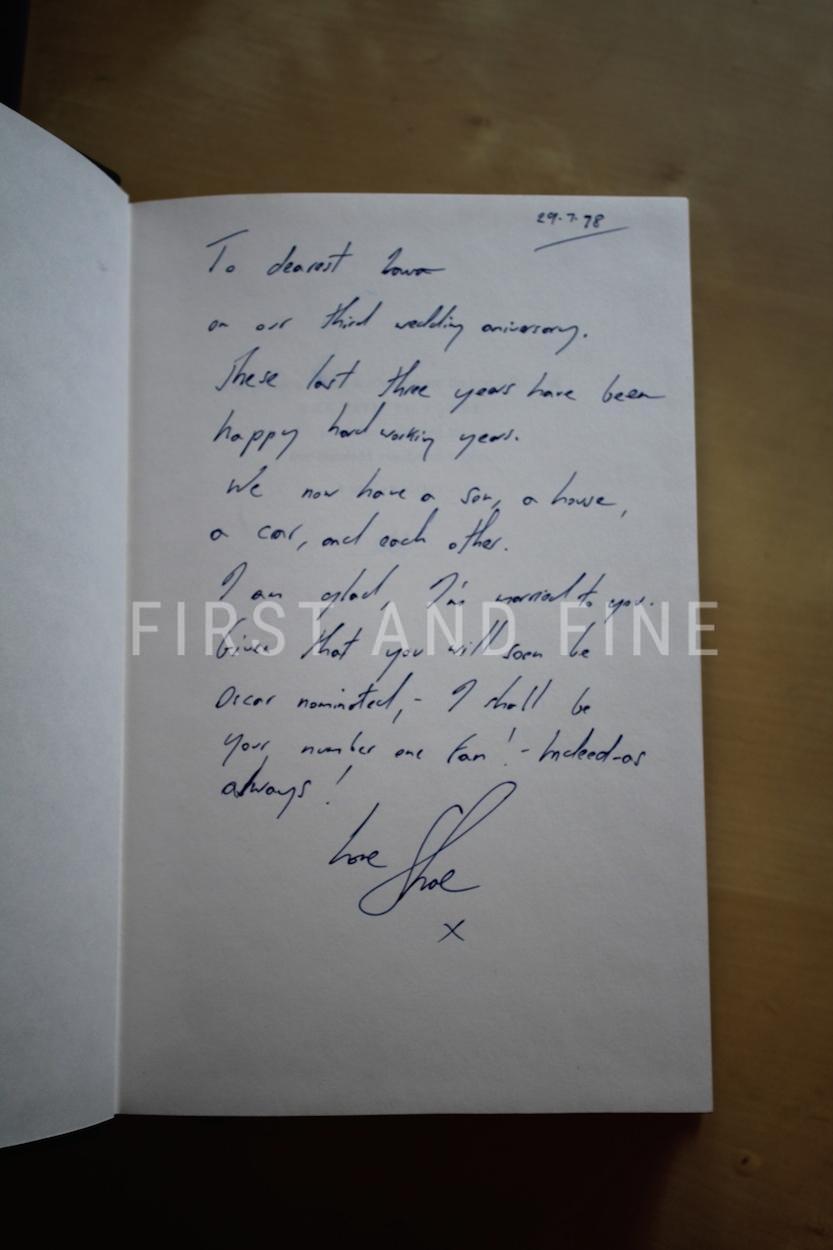 29.7.98
To dearest
on our third wedding aniversary.
These last three years have been
happy hard working years.
We now have a son, a house,
a car, and each other.
I am glad, I'm married to you.
FIRST AND FINE
Given that you will soon be
Oscar nominated,- I shall be
your number one fan! - Indeed-as
always!
Love
x